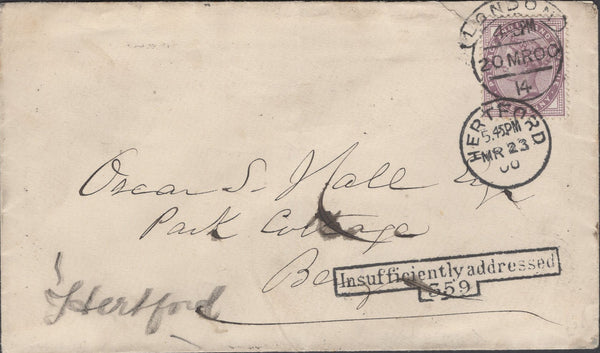 LONDON
4-PM
20 MR 00
14
HERTFORD
5.45PM
MR 23
00
Oscar S. Hall Esq
Park Cottage
Insufficiently addressed
359
Hertford